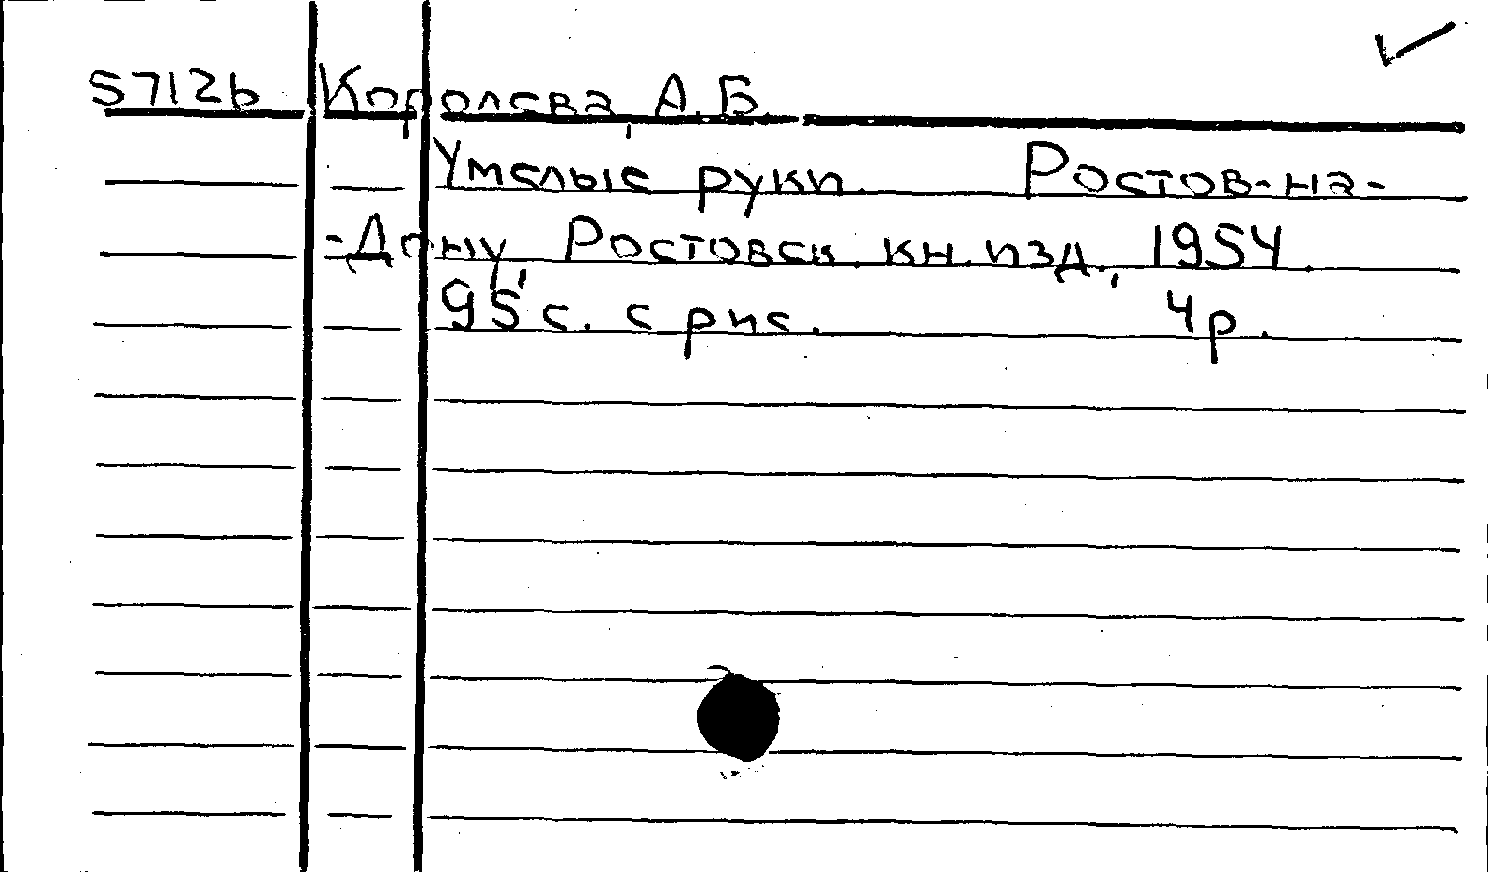 5712b Королева, А.Б.
Умелые руки. Ростов-на-
-Дону, Ростовск. кн. изд., 1954.
95 с. с рис. 4р.